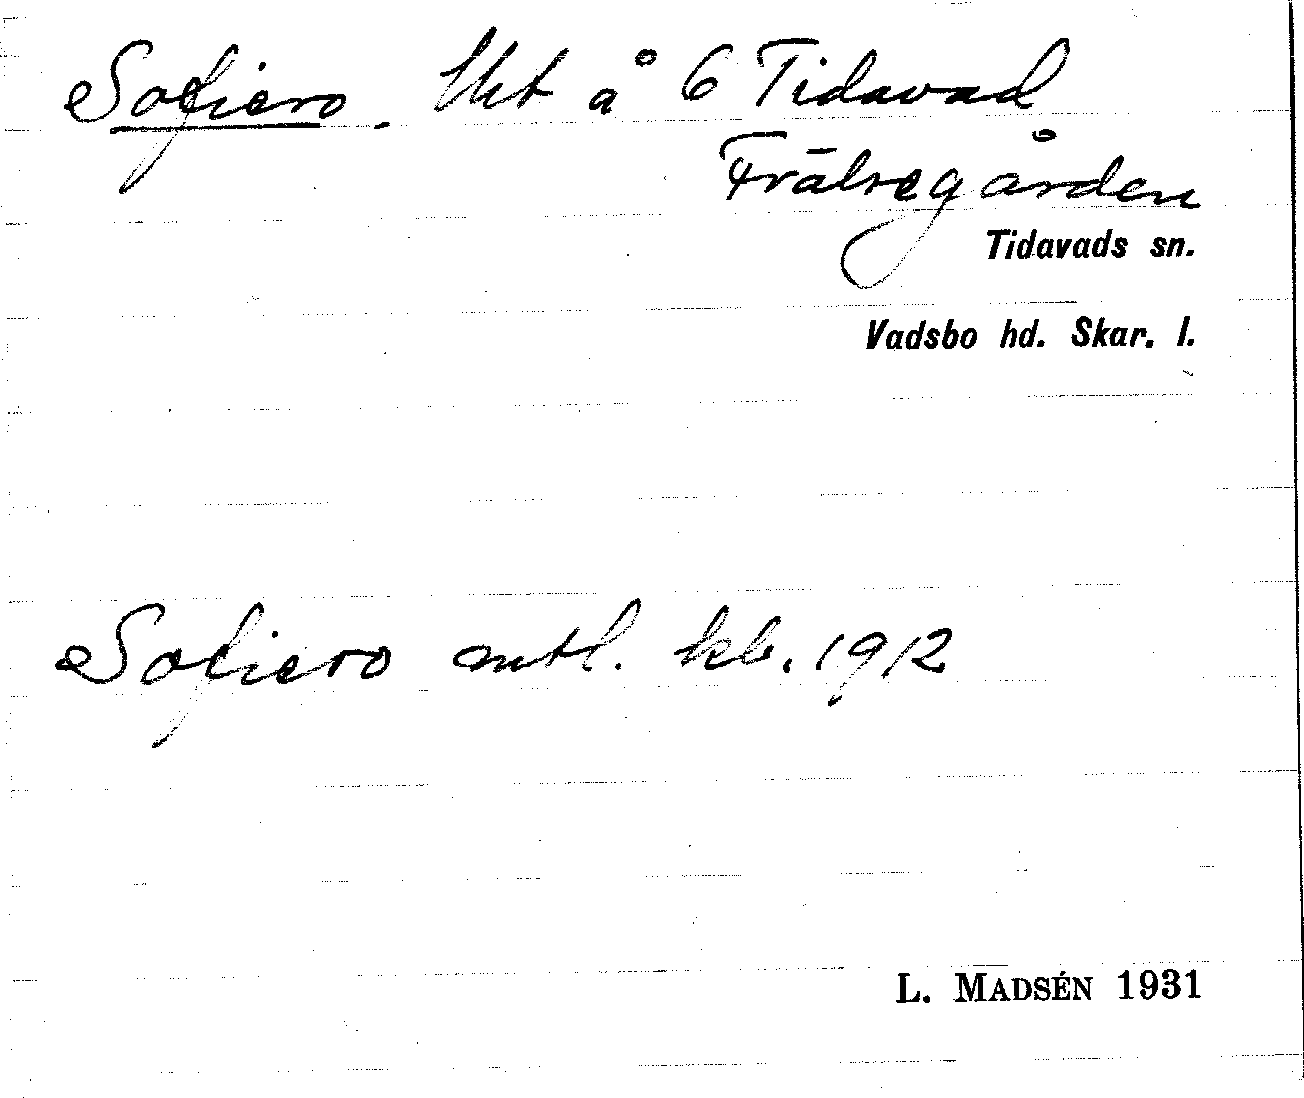 Sofiero. Lht å 6 Tidavad
Frälsegården
Tidavads sn.
Vadsbo hd. Skar. l.
Sofiero mtl. kb. 1912
L. MADSÉN 1931